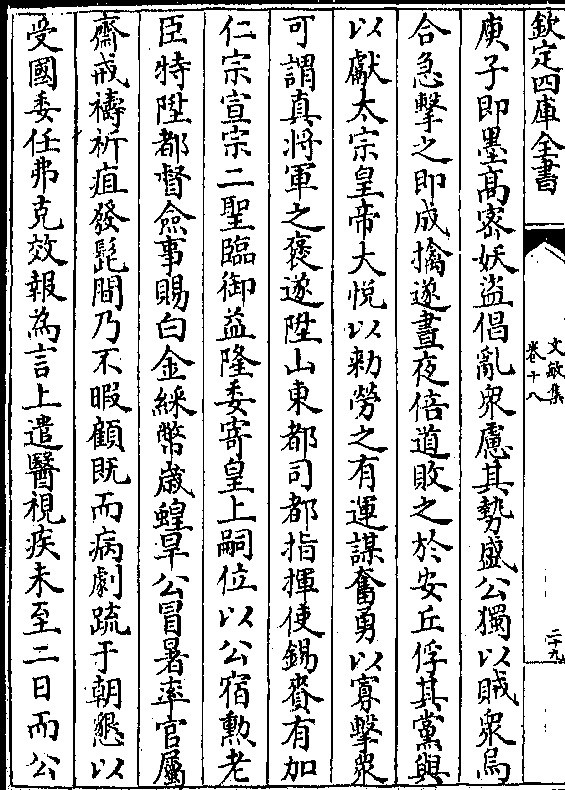 欽定四庫全書
文敏集
卷十八
二十九
庚子即墨高密妖盜倡亂衆慮其勢盛公獨以賊衆烏
合急擊之即成擒遂晝夜倍道敗之於安丘俘其黨與
以獻太宗皇帝大悅以勑勞之有運謀奮勇以寡擊衆
可謂真將軍之褒遂陞山東都司都指揮使錫賚有加
仁宗宣宗二聖臨御益隆委寄皇上嗣位以公宿勲老
臣特陞都督僉事賜白金綵幣歲蝗旱公冒暑率官屬
齋戒禱祈疽發髭間乃不暇顧既而病劇疏于朝懇以
受國委任弗克效報為言上遣醫視疾未至二日而公